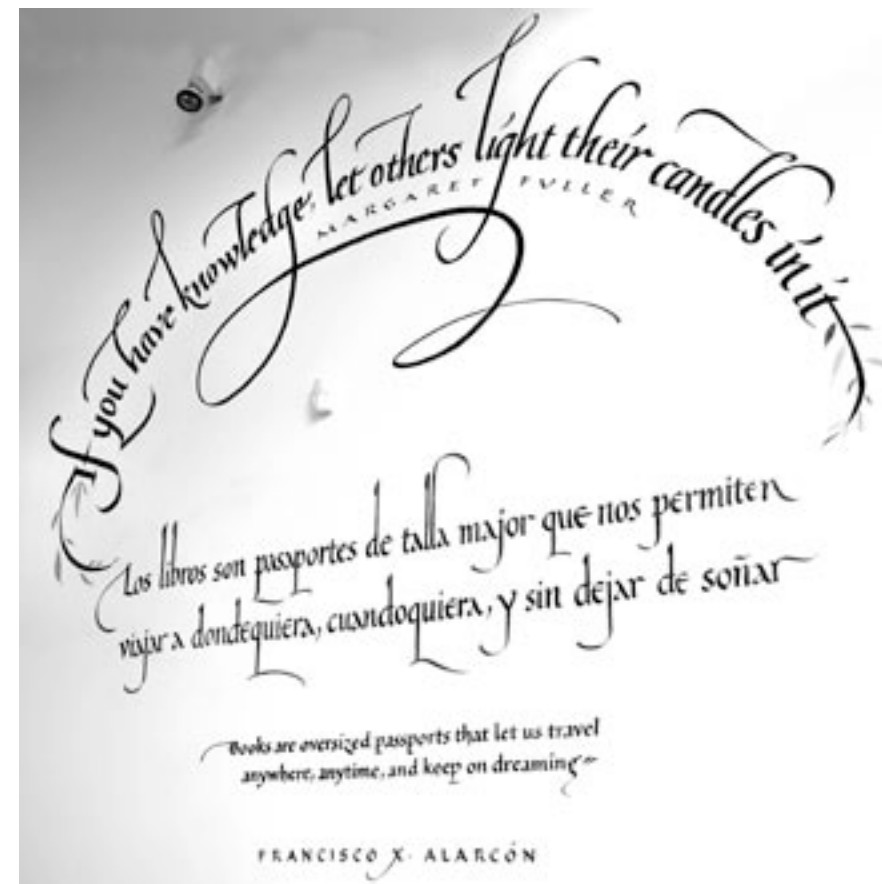 If you have knowledge, let others light their candles in it
MARGARET FULLER
Los libros son pasaportes de talla major que nos permiten
viajar a dondequiera, cuandoquiera, y sin dejar de soñar
Books are oversized passports that let us travel
anywhere, anytime, and keep on dreaming
FRANCISCO X. ALARCÓN